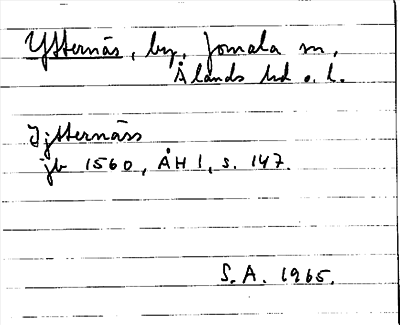 Ytternäs, by, Jomala sn,
Ålands hd o. l.
Ijtternäss
jb 1560, ÅH 1, s. 147.
S.A. 1965.